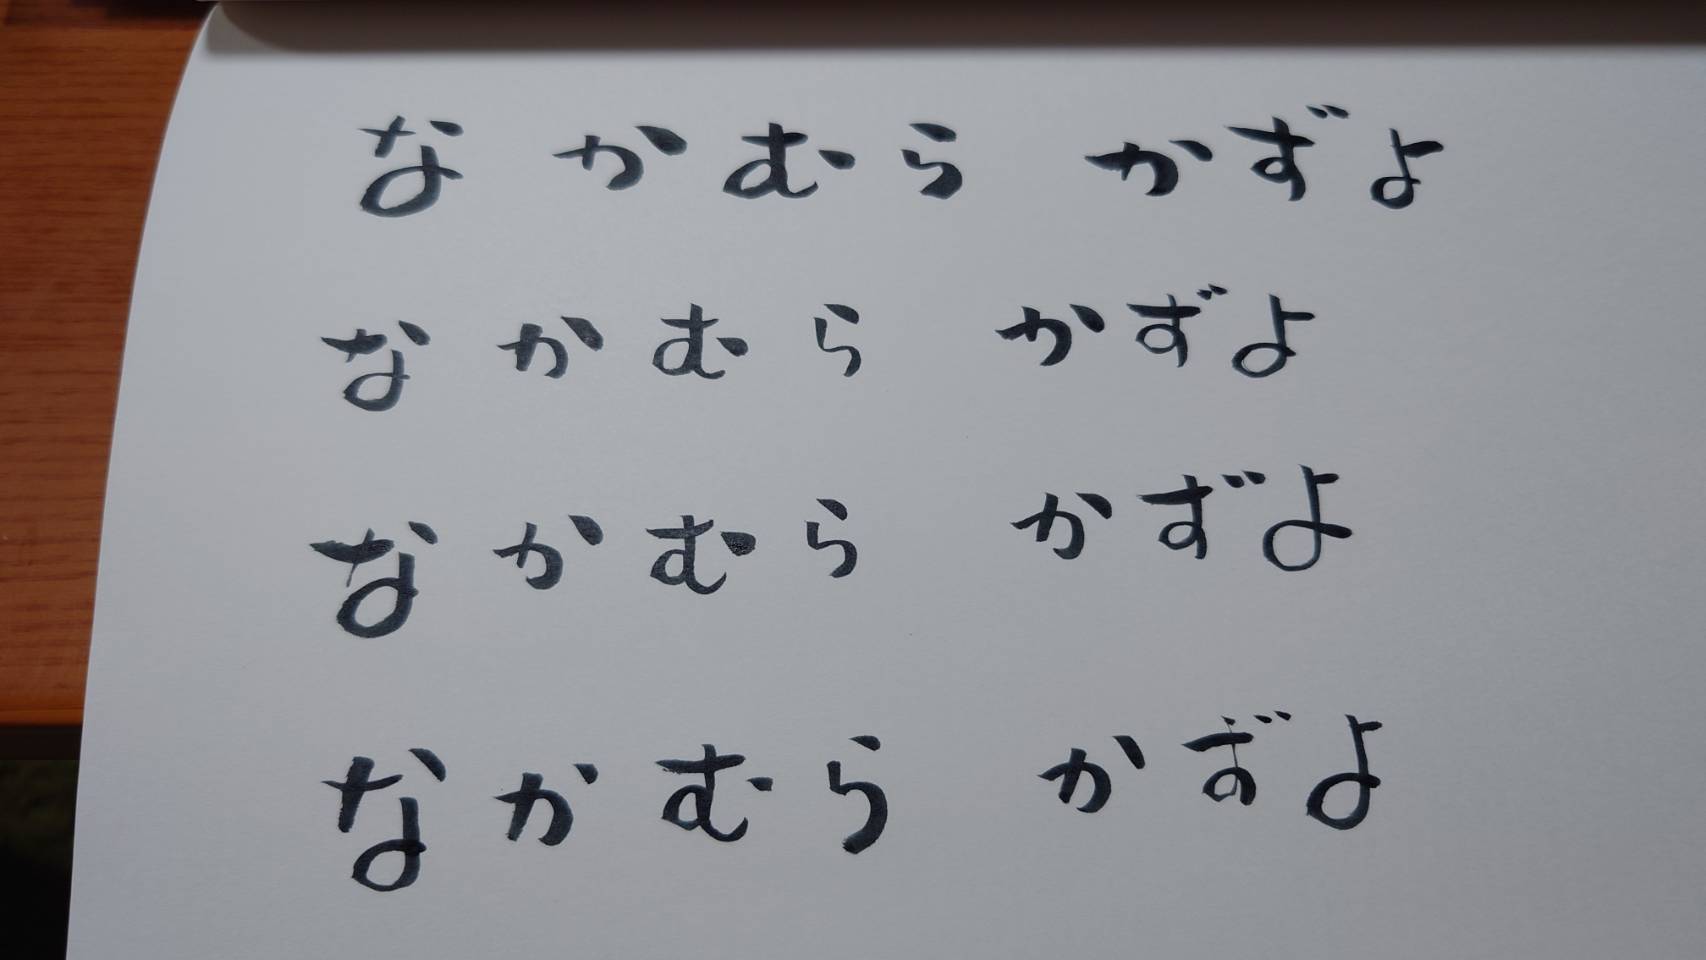 なかむら かずよ
なかむら かずよ
なかむら かずよ
なかむら かずよ